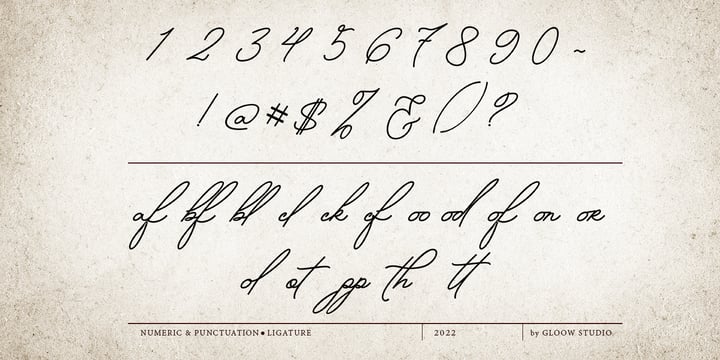 1 2 3 4 5 6 7 8 9 0 ~
! @ # $ % & ( ) ?
af bf bl cl ck ef oo od of on or
ol ot pp th tt
NUMERIC & PUNCTUATION • LIGATURE 2022 by GLOOW STUDIO